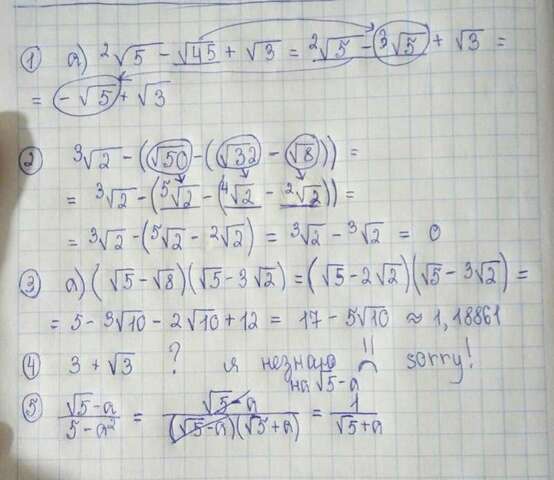 ① а) ²√5 - √45 + √3 = ²√5 - ³√5 + √3 =
= -√5 + √3
② ³√2 - (√50 - (√32 - √8))) =
= ³√2 - (⁵√2 - (⁴√2 - ²√2)) =
= ³√2 - (⁵√2 - 2√2) = ³√2 - ³√2 = 0
③ а) (√5 - √8)(√5 - 3√2) = (√5 - 2√2)(√5 - ³√2) =
= 5 - ³√10 - 2√10 + 12 = 17 - 5√10 ≈ 1,18861
④ 3 + √3 ? я незнаю sorry!
на √5-а
⑤ (√5-а)/(5-а²) = (√5-а)/((√5-а)(√5+а)) = 1/(√5+а)